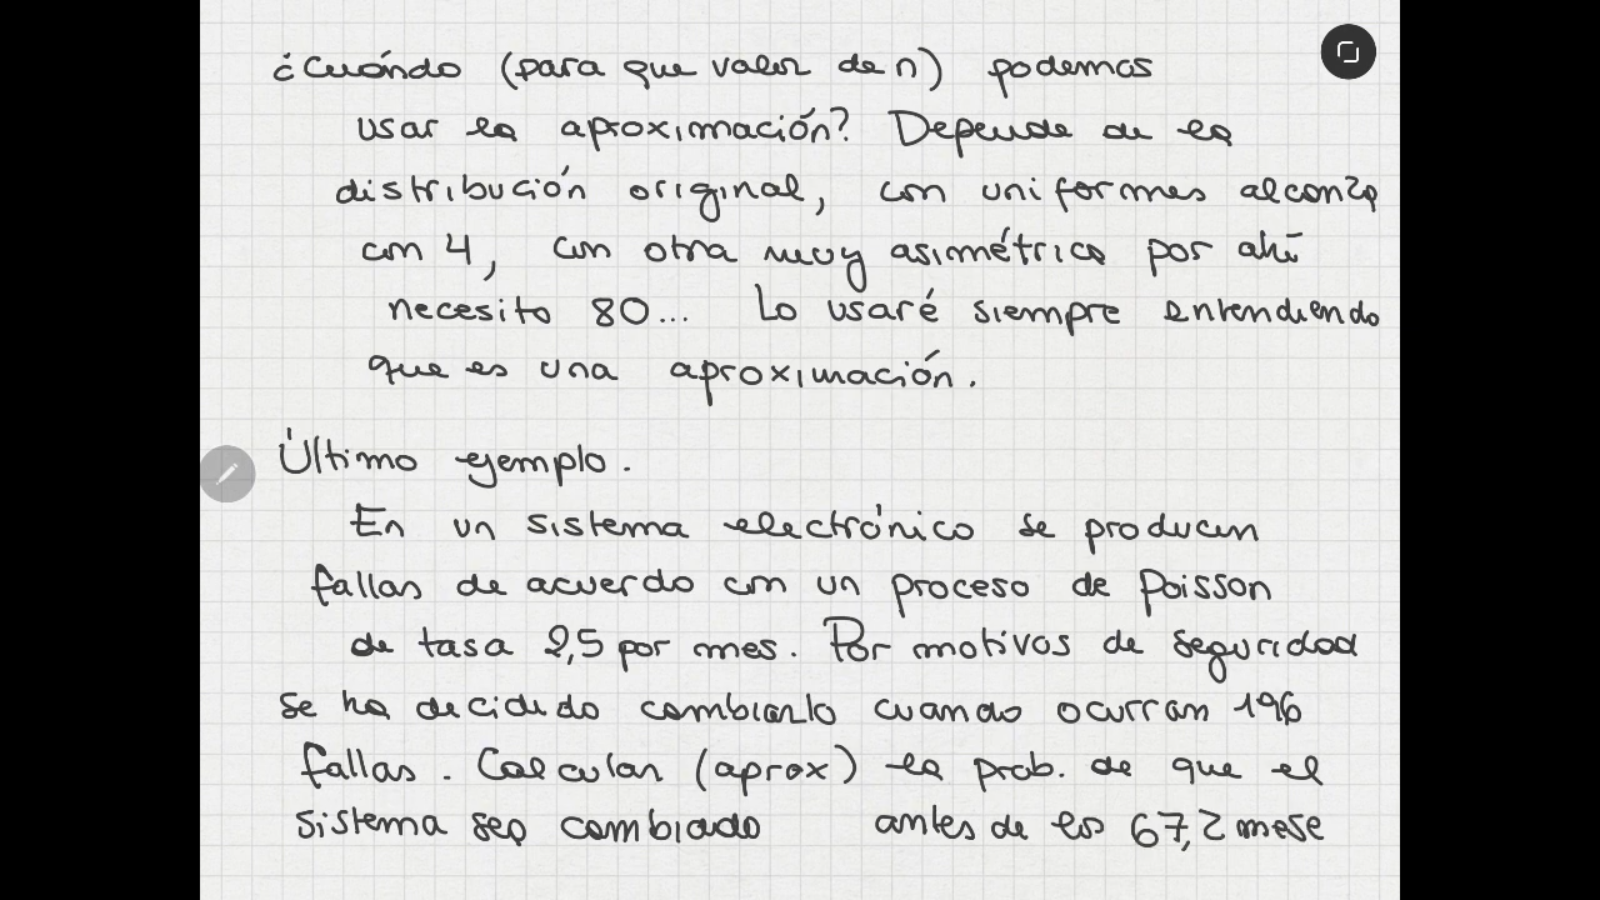 ¿Cuándo (para que valor de n) podemos
usar la aproximación? Depende de la
distribución original, con uniformes alcanza
con 4, con otra muy asimétrica por ahí
necesito 80... Lo usaré siempre entendiendo
que es una aproximación.
Último ejemplo.
En un sistema electrónico se producen
fallas de acuerdo con un proceso de Poisson
de tasa 2,5 por mes. Por motivos de seguridad
se ha decidido cambiarlo cuando ocurran 196
fallas. Calcular (aprox) la prob. de que el
sistema sea cambiado antes de los 67,2 mese